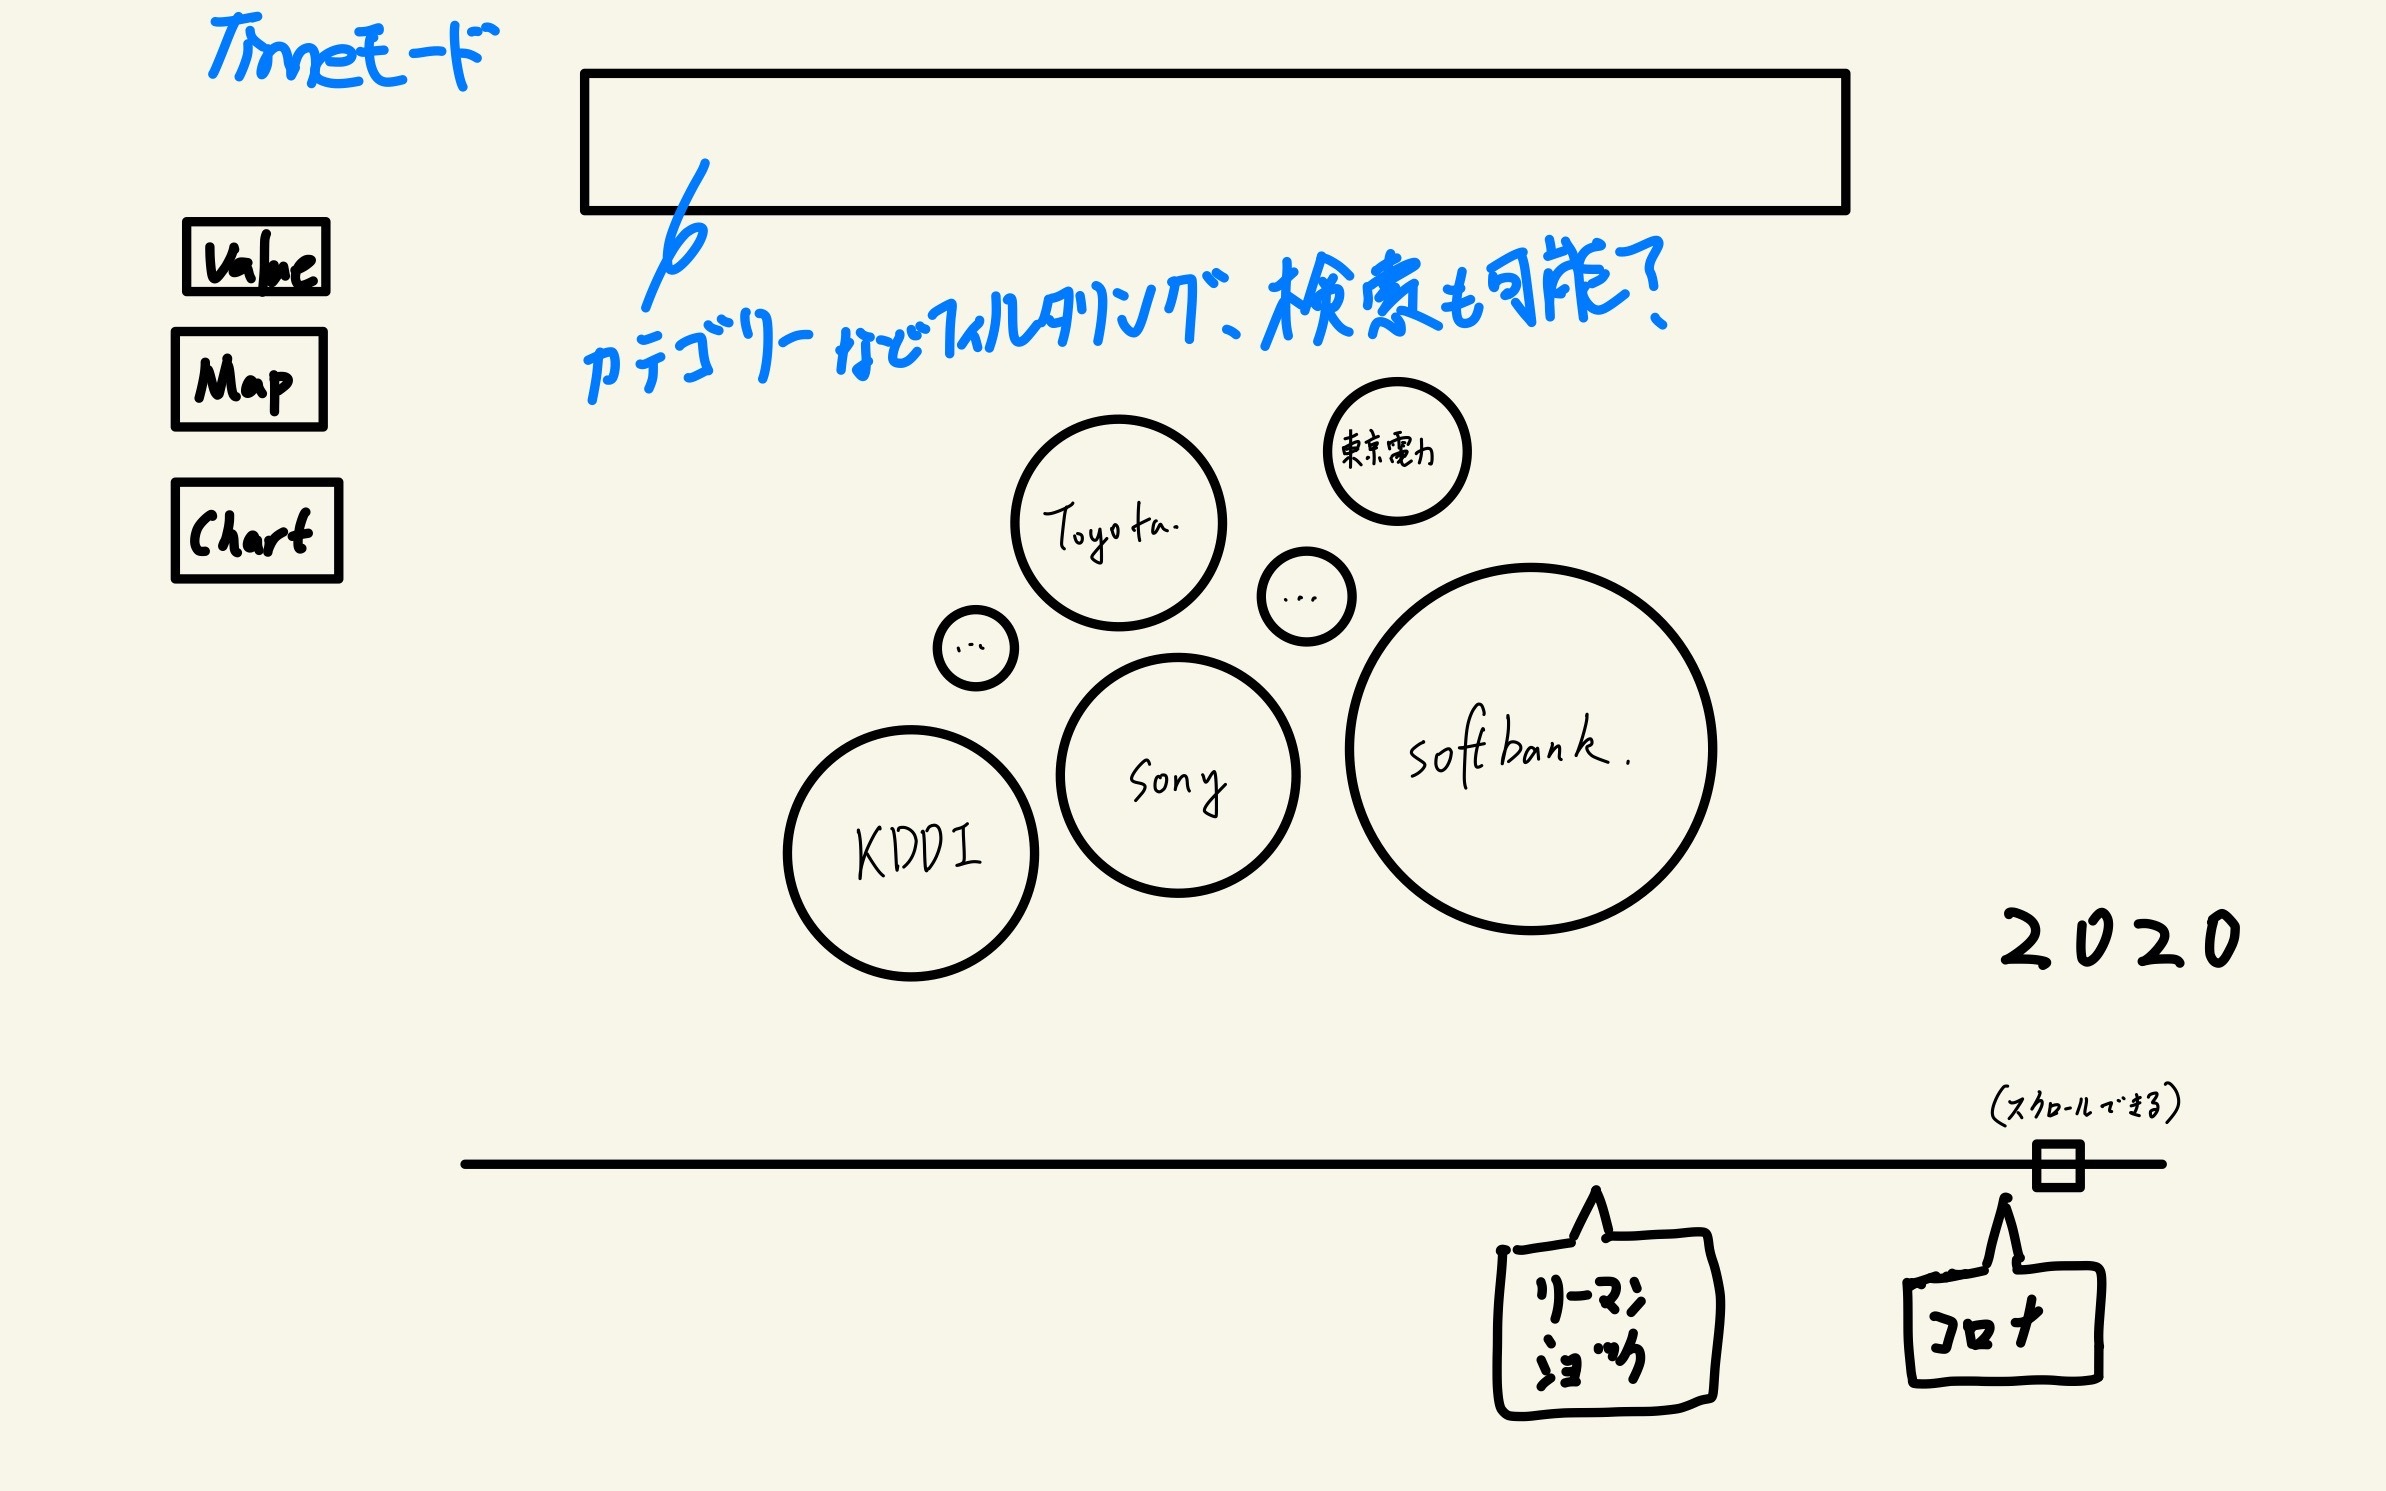 Timeモード
Value
カテゴリーなどフィルタリング、検索も可能?
Map
東京電力
Toyota.
Chart
...
...
softbank.
Sony
KDDI
2020
(スクロールできる)
リーマン
ショック
コロナ